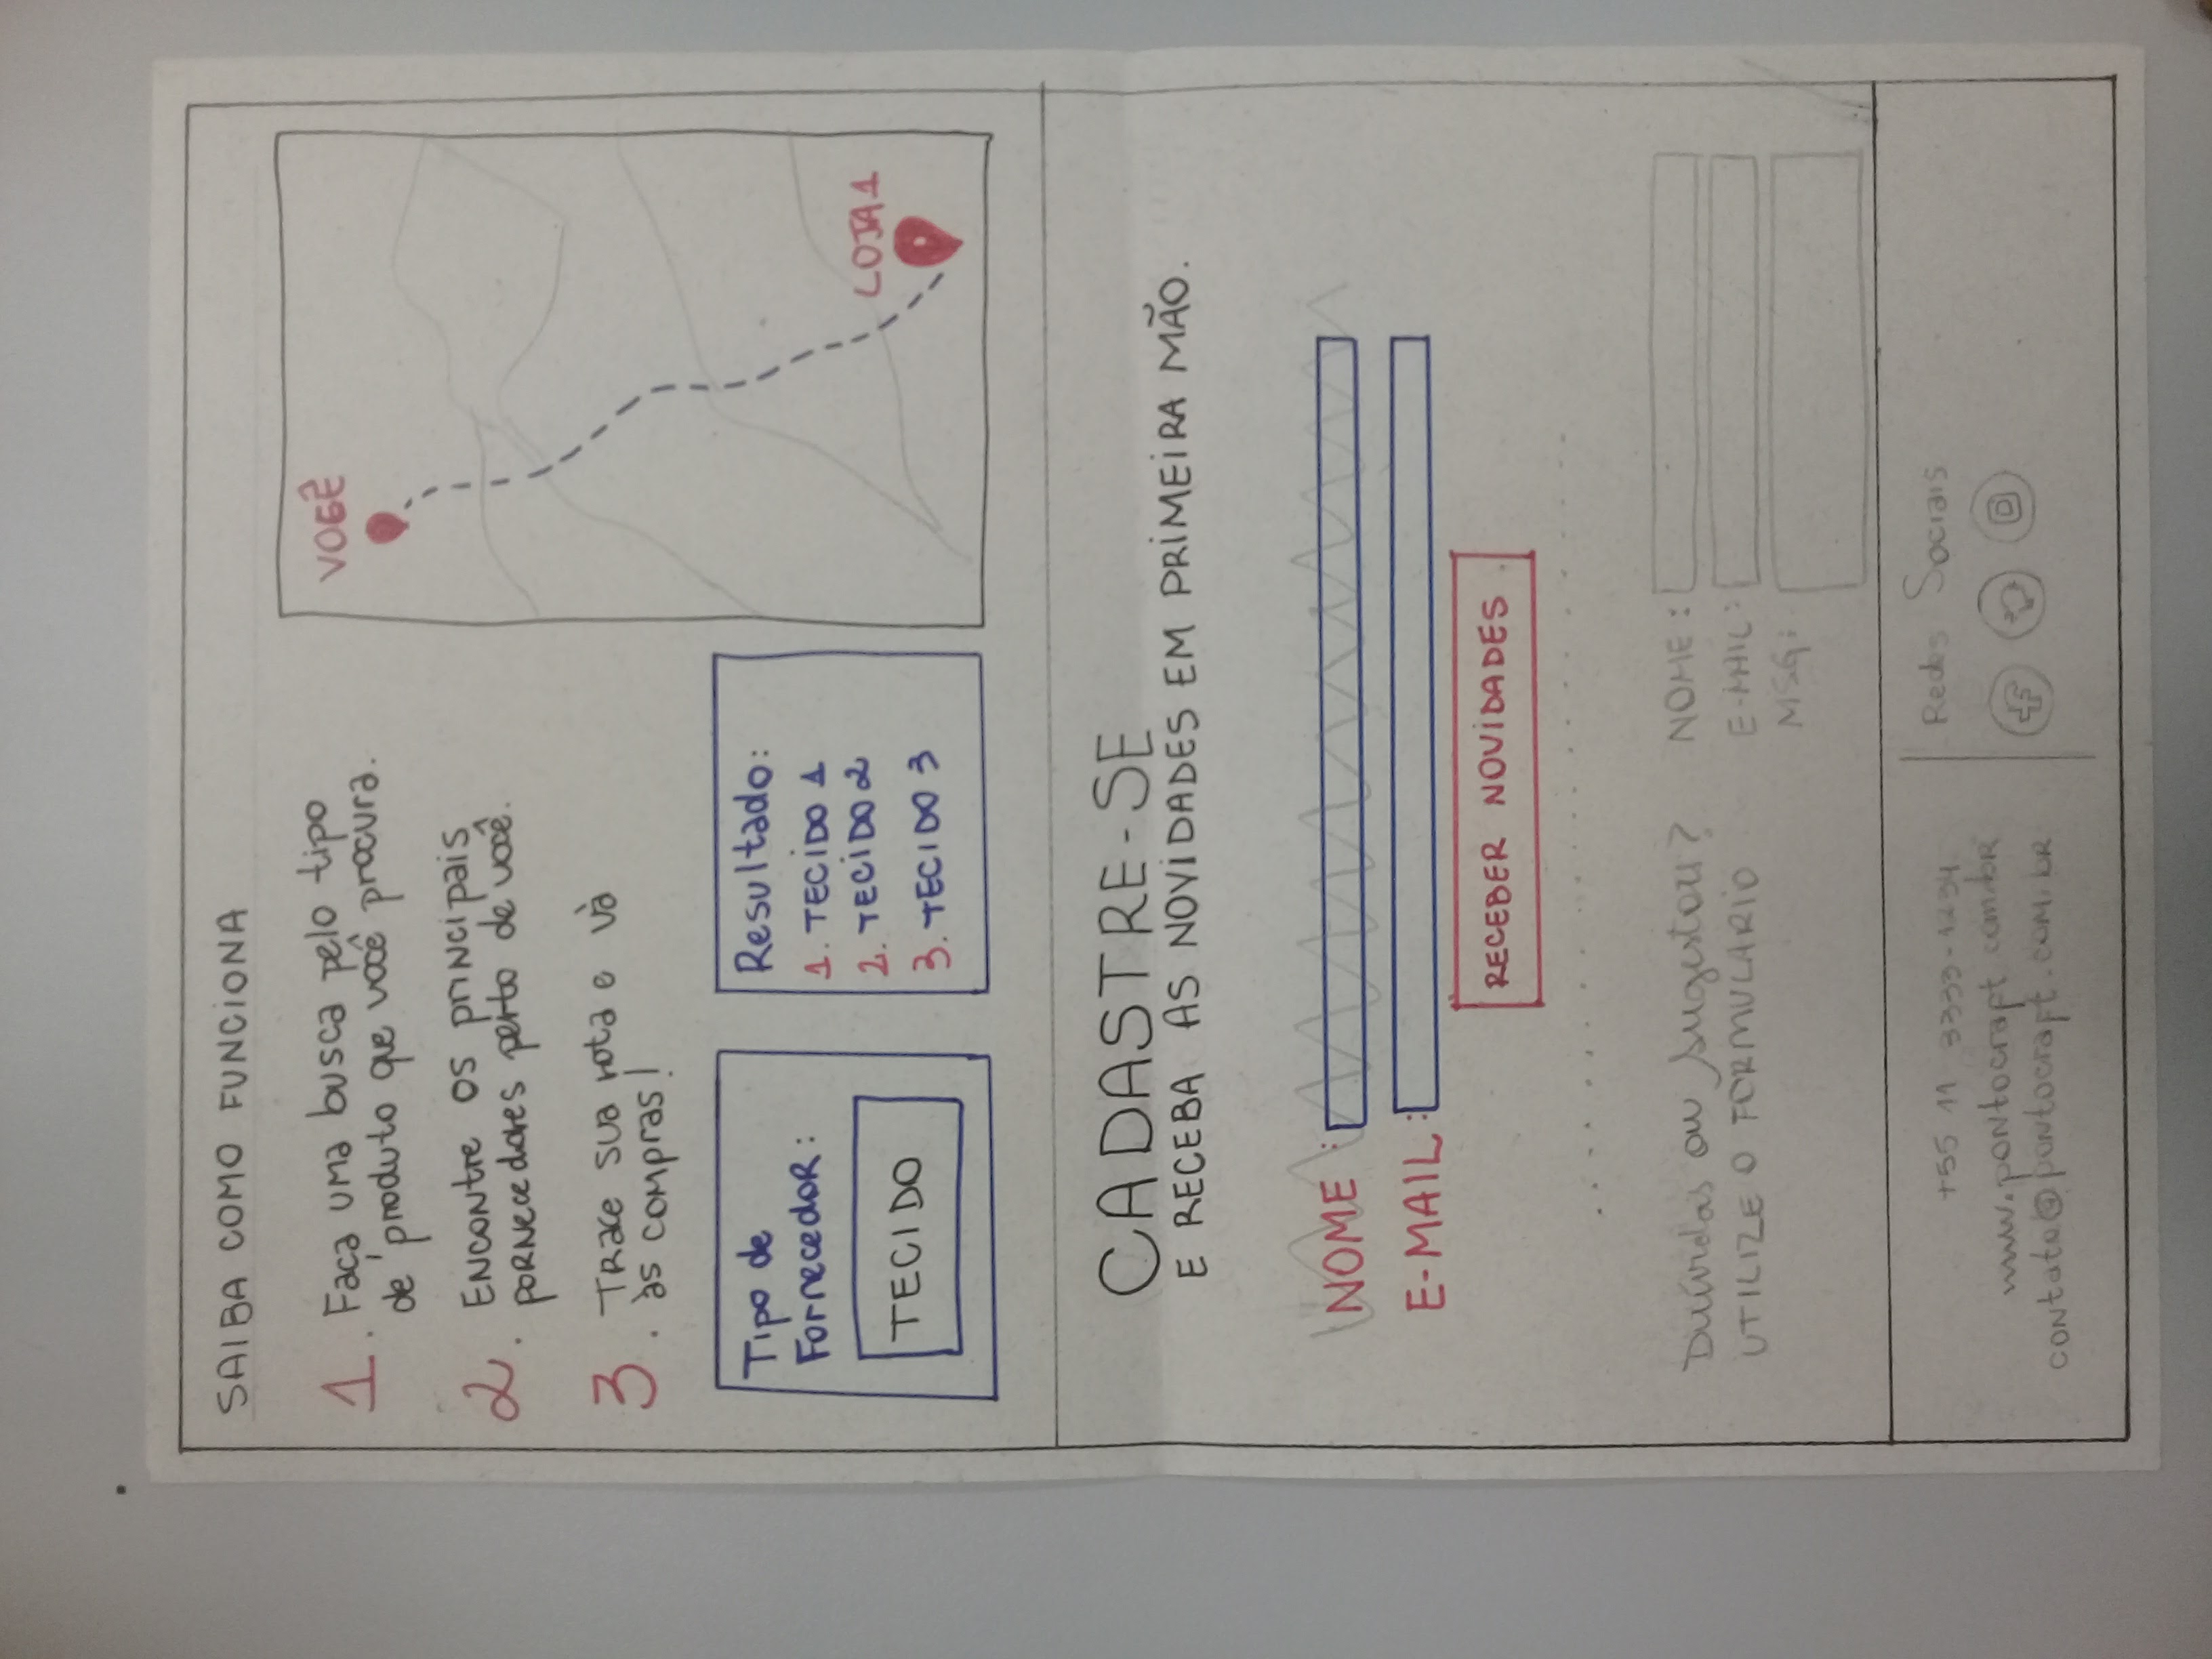 SAIBA COMO FUNCIONA
1. Faça uma busca pelo tipo
de produto que você procura.
2. Encontre os principais
fornecedores perto de você.
3. Trace sua rota e và
às compras!
VOCÊ
LOJA 1
Tipo de
Fornecedor:
TECIDO
Resultado:
1. TECIDO 1
2. TECIDO 2
3. TECIDO 3
CADASTRE-SE
E RECEBA AS NOVIDADES EM PRIMEIRA MÃO.
NOME:
E-MAIL:
RECEBER NOVIDADES
Dúvidas ou sugestou?
UTILIZE O FORMULARIO
NOME:
E-MAIL:
MSG:
+55 11 3333-1234
www.pontocraft.com.br
contato@pontocraft.com.br
Redes Sociais